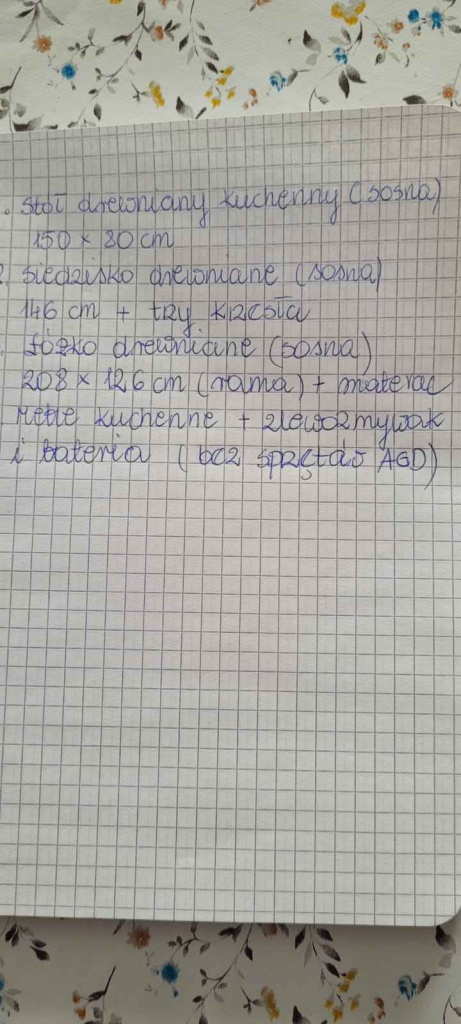 . stół drewniany kuchenny (sosna)
150 x 80 cm
2. siedzisko drewniane (sosna)
146 cm + trzy krzesła
. łóżko drewniane (sosna)
208 x 126 cm (rama) + materac
. meble kuchenne + zlewozmywak
i bateria (bez sprzętów AGD)